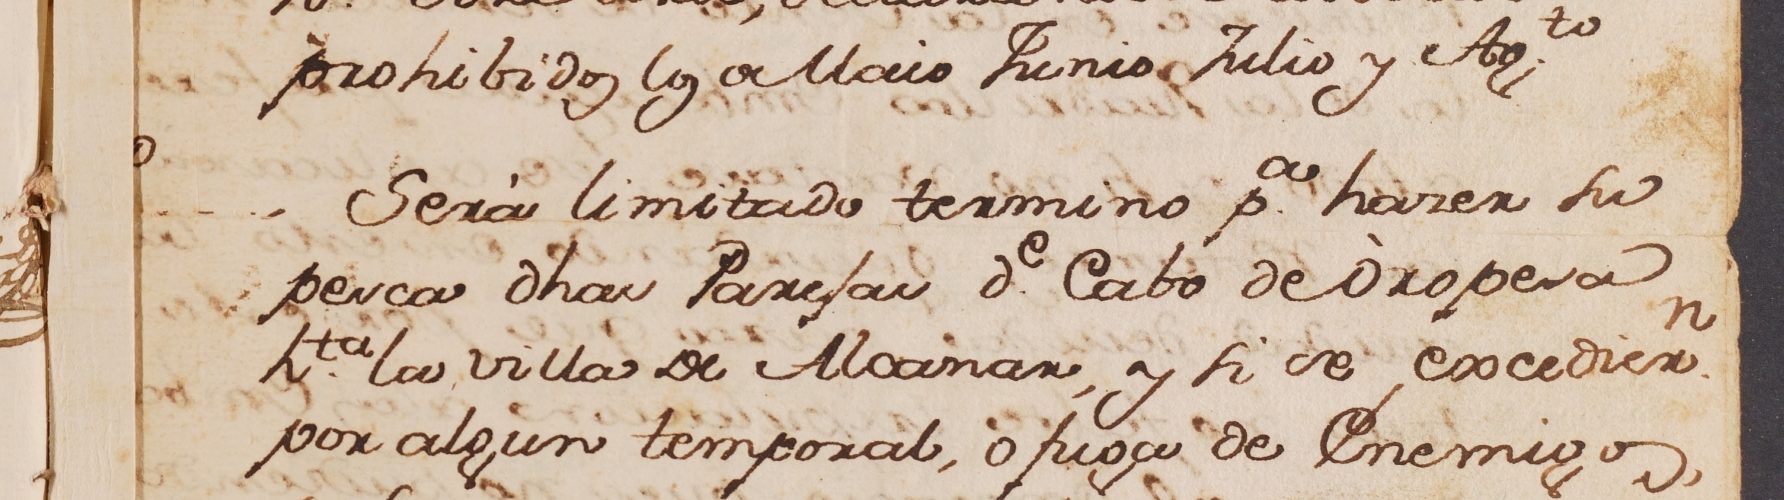 prohibidos los a Maio Junio Julio y Ag.to
Será limitado termino p.a hazer su
pesca dhas Parejas d.e Cabo de Oropesa
h.ta la villa de Alcanar, y si se excedier.n
por algun temporal, o fuga de Enemigos,